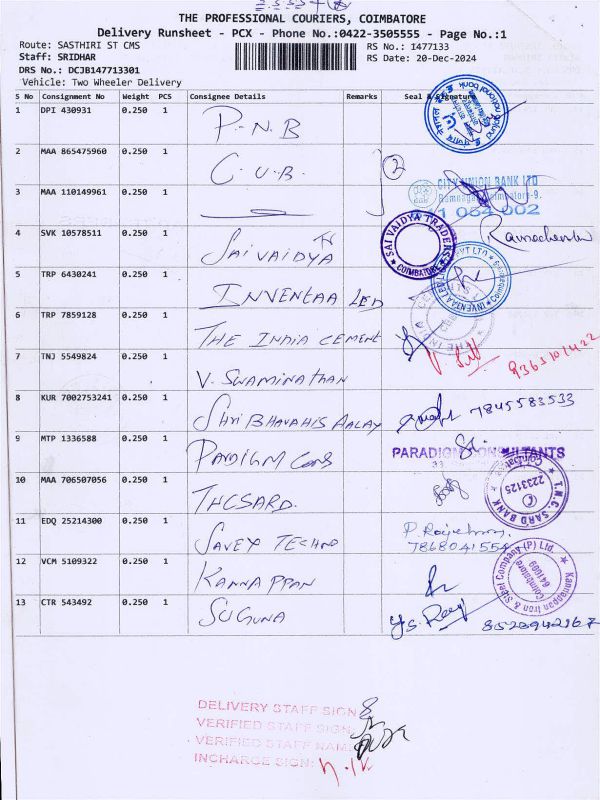 THE PROFESSIONAL COURIERS, COIMBATORE
Delivery Runsheet - PCX - Phone No.:0422-3505555 - Page No.:1
Route: SASTHIRI ST CMS
RS No.: I477133
Staff: SRIDHAR
RS Date: 20-Dec-2024
DRS No.: DCJB147713301
Vehicle: Two Wheeler Delivery
S No Consignment No Weight PCS Consignee Details Remarks Seal & Signature
1 DPI 430931 0.250 1 P.N.B
2 MAA 865475960 0.250 1 C.U.B. 2
CITY UNION BANK LTD
Ramnagar, Coimbatore-9.
3 MAA 110149961 0.250 1
4 SVK 10578511 0.250 1 SAI VAIDYA
SAI VAIDYA TRADERS
COIMBATORE
5 TRP 6430241 0.250 1 INVENTAA LED
6 TRP 7859128 0.250 1 THE INDIA CEMENT
7 TNJ 5549824 0.250 1 V. SWAMINATHAN 9363101422
8 KUR 7002753241 0.250 1 SHRI BHAVAHIS AALAY 7845583533
9 MTP 1336588 0.250 1 PARDIGM CONS
PARADIGM CONSULTANTS
10 MAA 706507056 0.250 1 THCSARD.
T.N.C. SARD BANK
2233125
11 EDQ 25214300 0.250 1 SAVEX TECHNO
7868041554
12 VCM 5109322 0.250 1 KANNAPPAN
Kannappan Iron & Steel Company (P) Ltd.
Coimbatore
641009
13 CTR 543492 0.250 1 SUGUNA 8523942167
DELIVERY STAFF SIGN:
VERIFIED STAFF SIGN:
VERIFIED STAFF NAME:
INCHARGE SIGN: